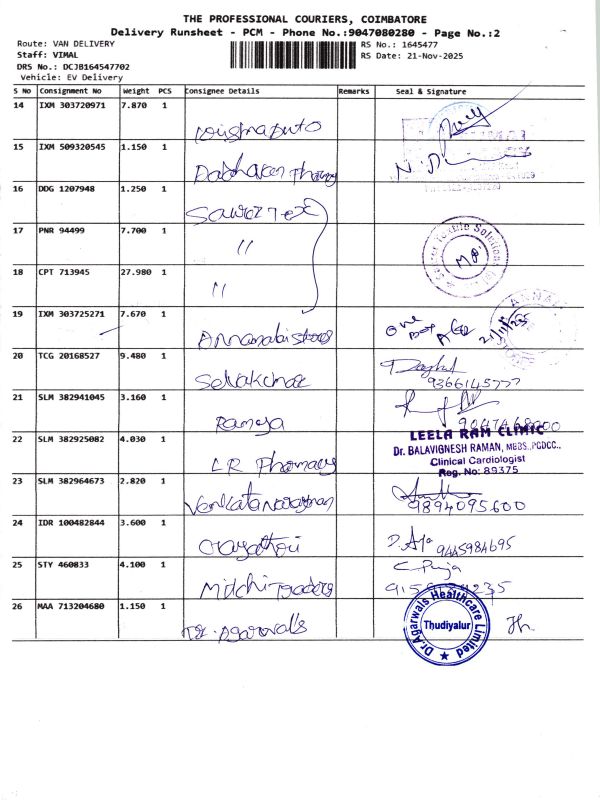 THE PROFESSIONAL COURIERS, COIMBATORE
Delivery Runsheet - PCM - Phone No.:9047080280 - Page No.:2
Route: VAN DELIVERY
Staff: VIMAL
DRS No.: DCJB164547702
Vehicle: EV Delivery
RS No.: 1645477
RS Date: 21-Nov-2025
S No Consignment No Weight PCS Consignee Details Remarks Seal & Signature
14 IXM 303720971 7.870 1
15 IXM 509320545 1.150 1
16 DDG 1207948 1.250 1
17 PNR 94499 7.700 1 "
18 CPT 713945 27.980 1 "
19 IXM 303725271 7.670 1 one Box
20 TCG 20168527 9.480 1 9366145777
21 SLM 382941045 3.160 1 Ramya
LEELA RAM CLINIC
Dr. BALAVIGNESH RAMAN, MBBS.,PGDCC.,
Clinical Cardiologist
Reg. No: 89375
22 SLM 382925082 4.030 1 LR Pharmacy
23 SLM 382964673 2.820 1 9894095600
24 IDR 100482844 3.600 1 9445984695
25 STY 460833 4.100 1 Milchi Traders
26 MAA 713204680 1.150 1
Dr.Agarwals Healthcare Limited
Thudiyalur